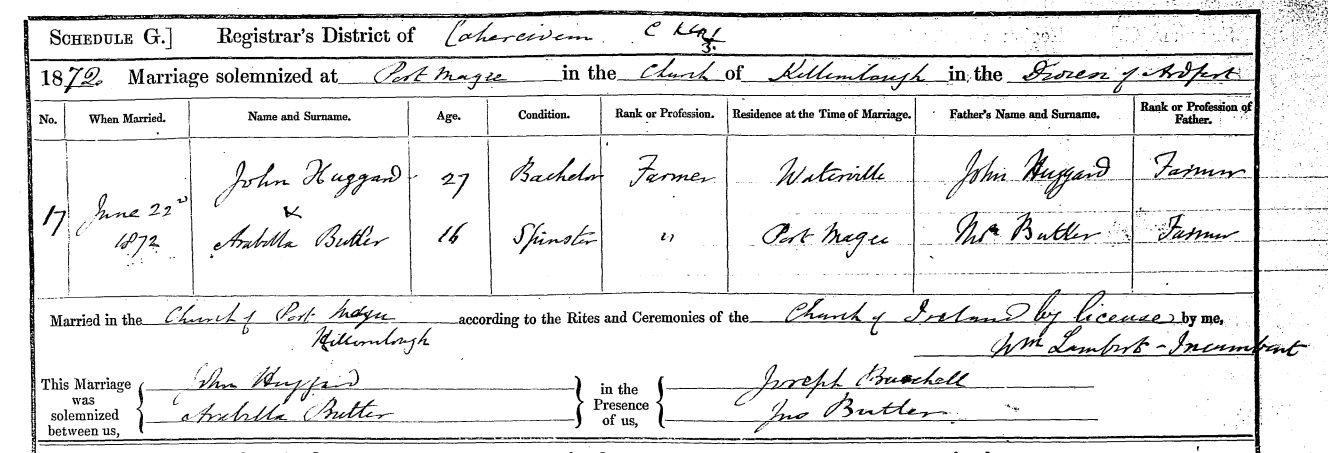 SCHEDULE G.] Registrar's District of Caherciveen
1872. Marriage solemnized at Port Magee in the Church of Killemlough in the Diocese of Ardfert
No. When Married. Name and Surname. Age. Condition. Rank or Profession. Residence at the Time of Marriage. Father's Name and Surname. Rank or Profession of Father.
John Huggard 27 Bachelor Farmer Waterville John Huggard Farmer
17 June 22d 1872 &
Arabella Butler 16 Spinster " Port Magee Butler Farmer
Married in the Church of Port Magee according to the Rites and Ceremonies of the Church of Ireland by license by me,
Killemlough Wm Lambert - Incumbent
This Marriage was solemnized between us, John Huggard in the Presence of us, Joseph
Arabella Butler Jno Butler